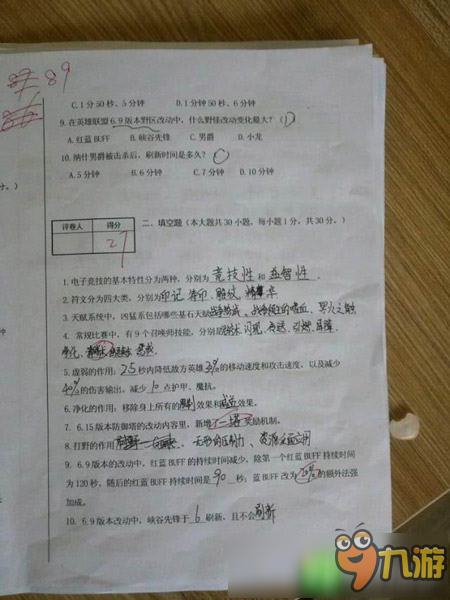 89
C.1分50秒、5分钟 D.1分50秒、6分钟
9.在英雄联盟6.9版本野区改动中,什么野怪改动变化最大?( )
A.红蓝BUFF B.峡谷先锋 C.男爵 D.小龙
10.纳什男爵被击杀后,刷新时间是多久?
A.5分钟 B.6分钟 C.7分钟 D.10分钟
评卷人 得分
27
二、填空题(本大题共30小题,每小题1分,共30分。)
1.电子竞技的基本特性分为两种,分别为 竞技性 和 益智性 .
2.符文分为四大类,分别为印记
3.天赋系统中,凶猛系包括哪些基石天赋
4.常规比赛中,有9个召唤师技能,分别是 闪现、 引燃、
净化、
5.虚弱的作用:2.5秒内降低敌方英雄 的移动速度和攻击速度,以及减少
40%的伤害输出,减少10点护甲、魔抗。
6.净化的作用,移除身上所有的 效果和 效果。
7.6.15版本防御塔的改动内容里,新增了一塔奖励机制。
8.打野的作用 、无形的压制力、资源
9.6.9版本的改动中,红蓝BUFF的持续时间减少,除第一个红蓝BUFF持续时间
为120秒,随后的红蓝BUFF持续时间是90秒;蓝BUFF改为 的额外法强
加成。
10.6.9版本改动中,峡谷先锋于6刷新,且不会刷新
九游